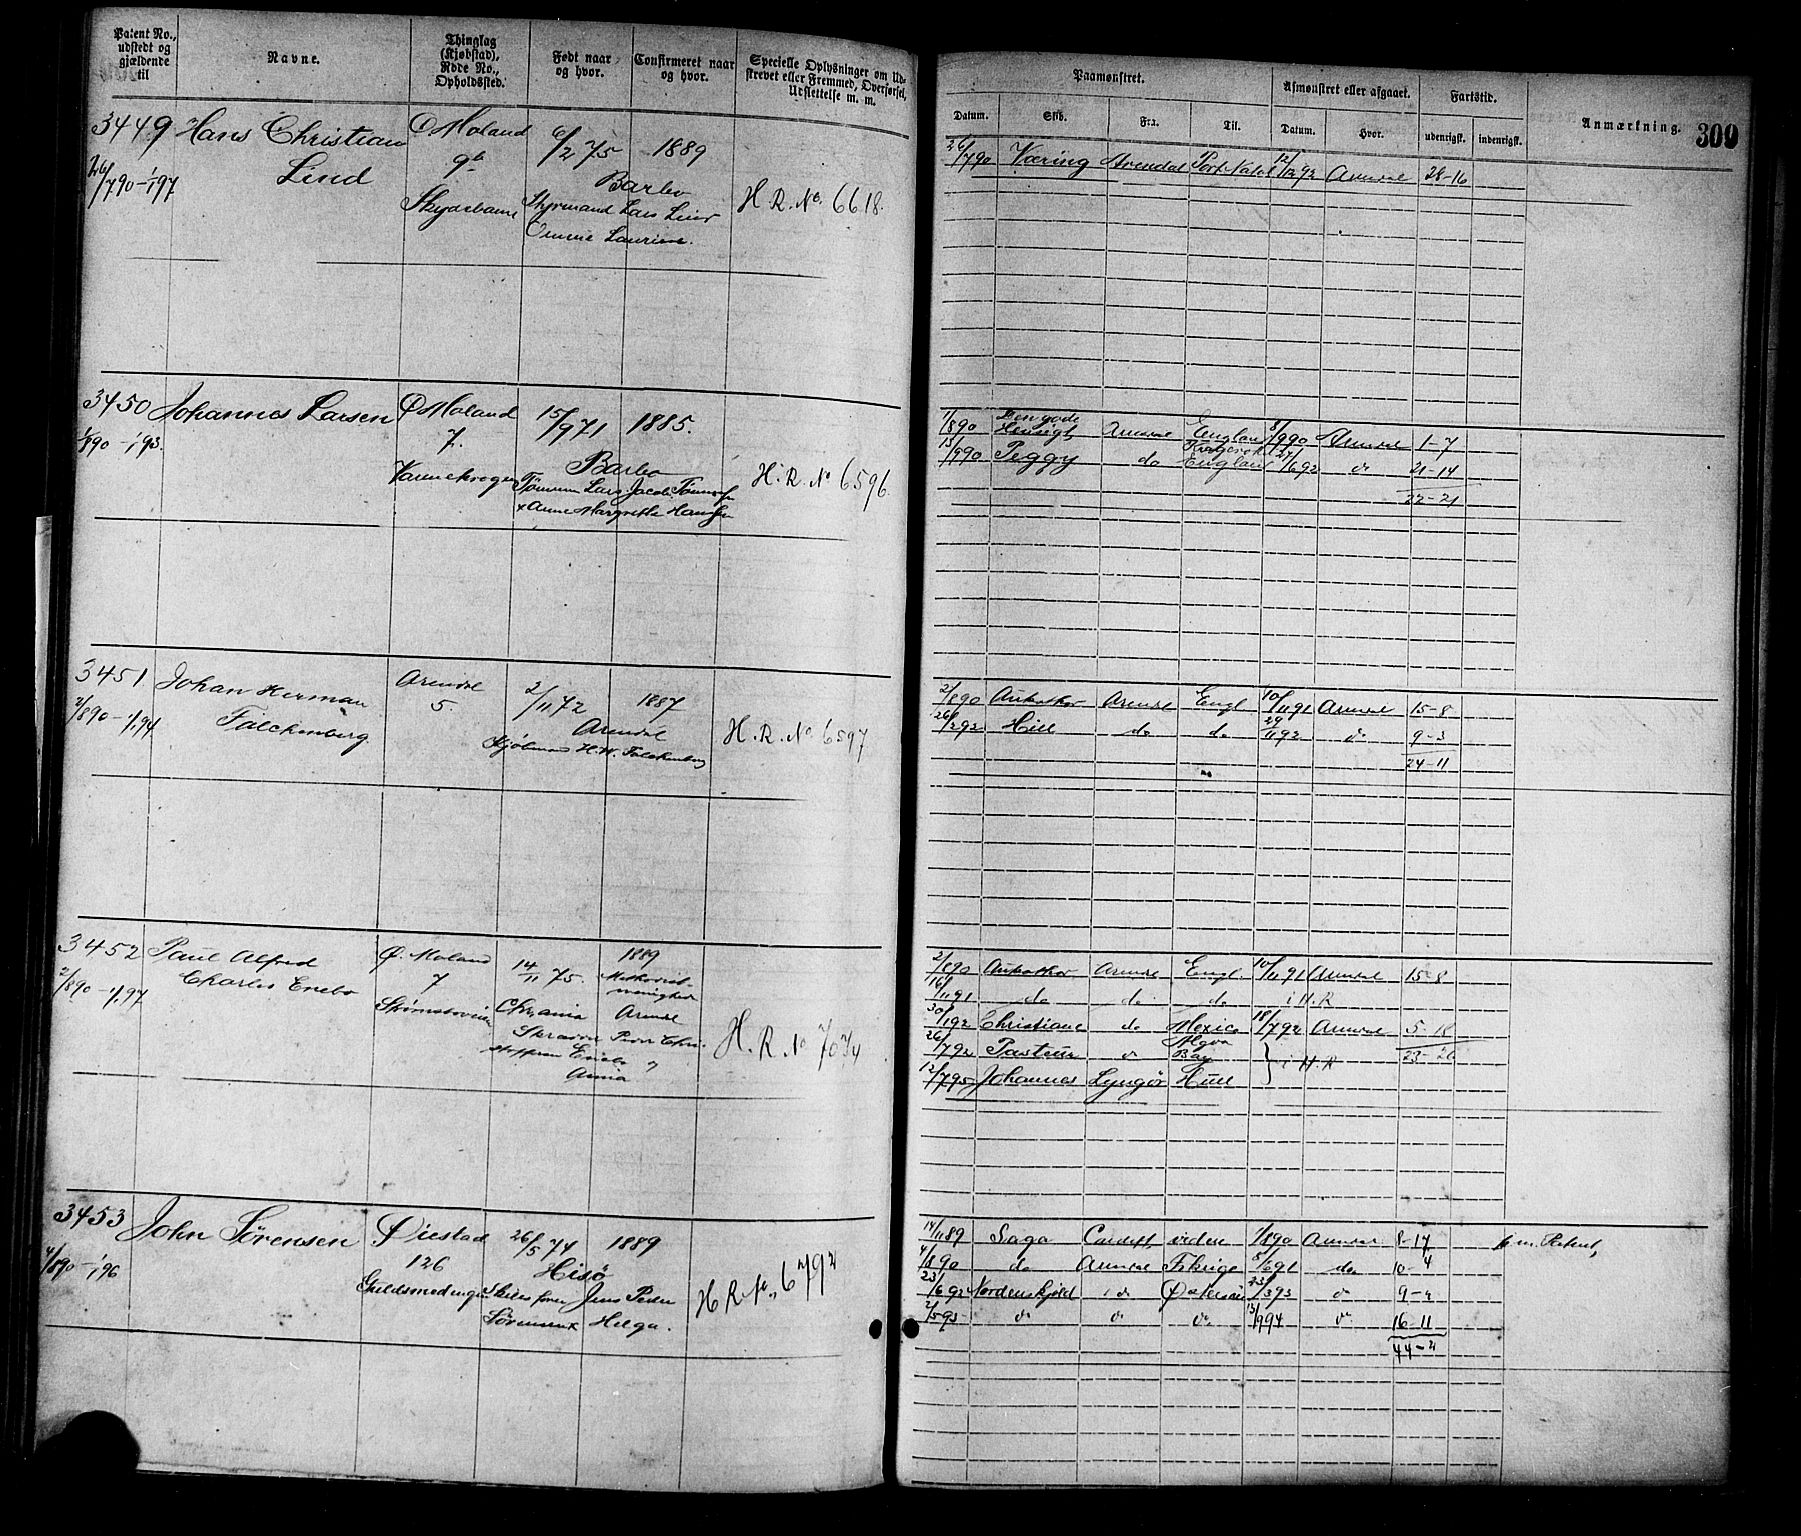 Patent No., udstedt og gjældende til
Navne.
Thinglag (Kjøbstad), Rode No., Opholdssted.
Født naar og hvor.
Confirmeret naar og hvor.
Specielle Oplysninger om Udskrevet eller Fremmed, Overførsel, Udslettelse m. m.
Paamønstret.
Afmønstret eller afgaaet.
Fartstid.
Anmærkning.
309
Datum.
Skib.
Fra.
Til.
Datum.
Hvor.
udenrigsk.
indenrigsk.
3449 Hans Christian Ø Moland 6/2 75 1889
26/7 90 - 1/1 97 Lind 9b Barbo
Styrmand Lars Lind H. R. No. 6618.
26/7 90 Væring Arendal Port Natal 12/12 92 Arendal 28-16
3450 Johannes Larsen Ø Moland 15/9 71 1885.
1/8 90 - 1/1 93. 7. Barbo
Tømmerm Lars Jacob Tønnesen H. R. No 6596.
x Anne Margrethe Hansen
1/8 90 Den gode Hensigt Arendal England 8/9 90 Arendal 1-7
15/9 90 Peggy do England 27/6 92 do 21-14
22-21
3451. Johan Herman Arendal 2/11 72 1887
2/8 90 - 1/1 94 Falckenberg. 5. Arendal
H. W. Falckenberg H. R. No. 6597
2/8 90 Aukathor Arendal Engl. 10/11 91 Arendal 15-8
26/2 92 Hill do do 29/11 92 do 9-3
24-11
3452 Paul Alfred Ø. Moland 14/11 75. 1889
2/8 90 - 1/1 97 Charles Enebo 7 Methodistmenighed
Strømsbovien Chrania Arendal
Skrædder Peder Christoffersen Enebo
Anna H. R. No 7074
2/8 90 Aukathor Arendal Engl. 10/11 91 Arendal 15-8
16/11 91 do do do i H. R
30/1 92 Christiane do Mexico 18/7 92 Arendal 5-18
26/7 92 Pasteur do Algoa Bay i H. R 23-26
12/7 95 Johannes Lyngør Hull
3453 John Sørensen Øiestad 26/5 74 1889
4/8 90 - 1/1 96 126 Hisø
Guldsmedengen Jens Peder H R. No. 6792
Sørensen x Helga.
14/11 89 Saga Cardiff, videre 1/8 90 Arendal 8-17 Patent,
4/8 90 do Arendal 8/6 91 do 10-4
23/6 92 Nordenskjöld do Østersøen 23/3 93 do 9-2
2/5 93 do do do 13/9 94 do 16-11
44-4